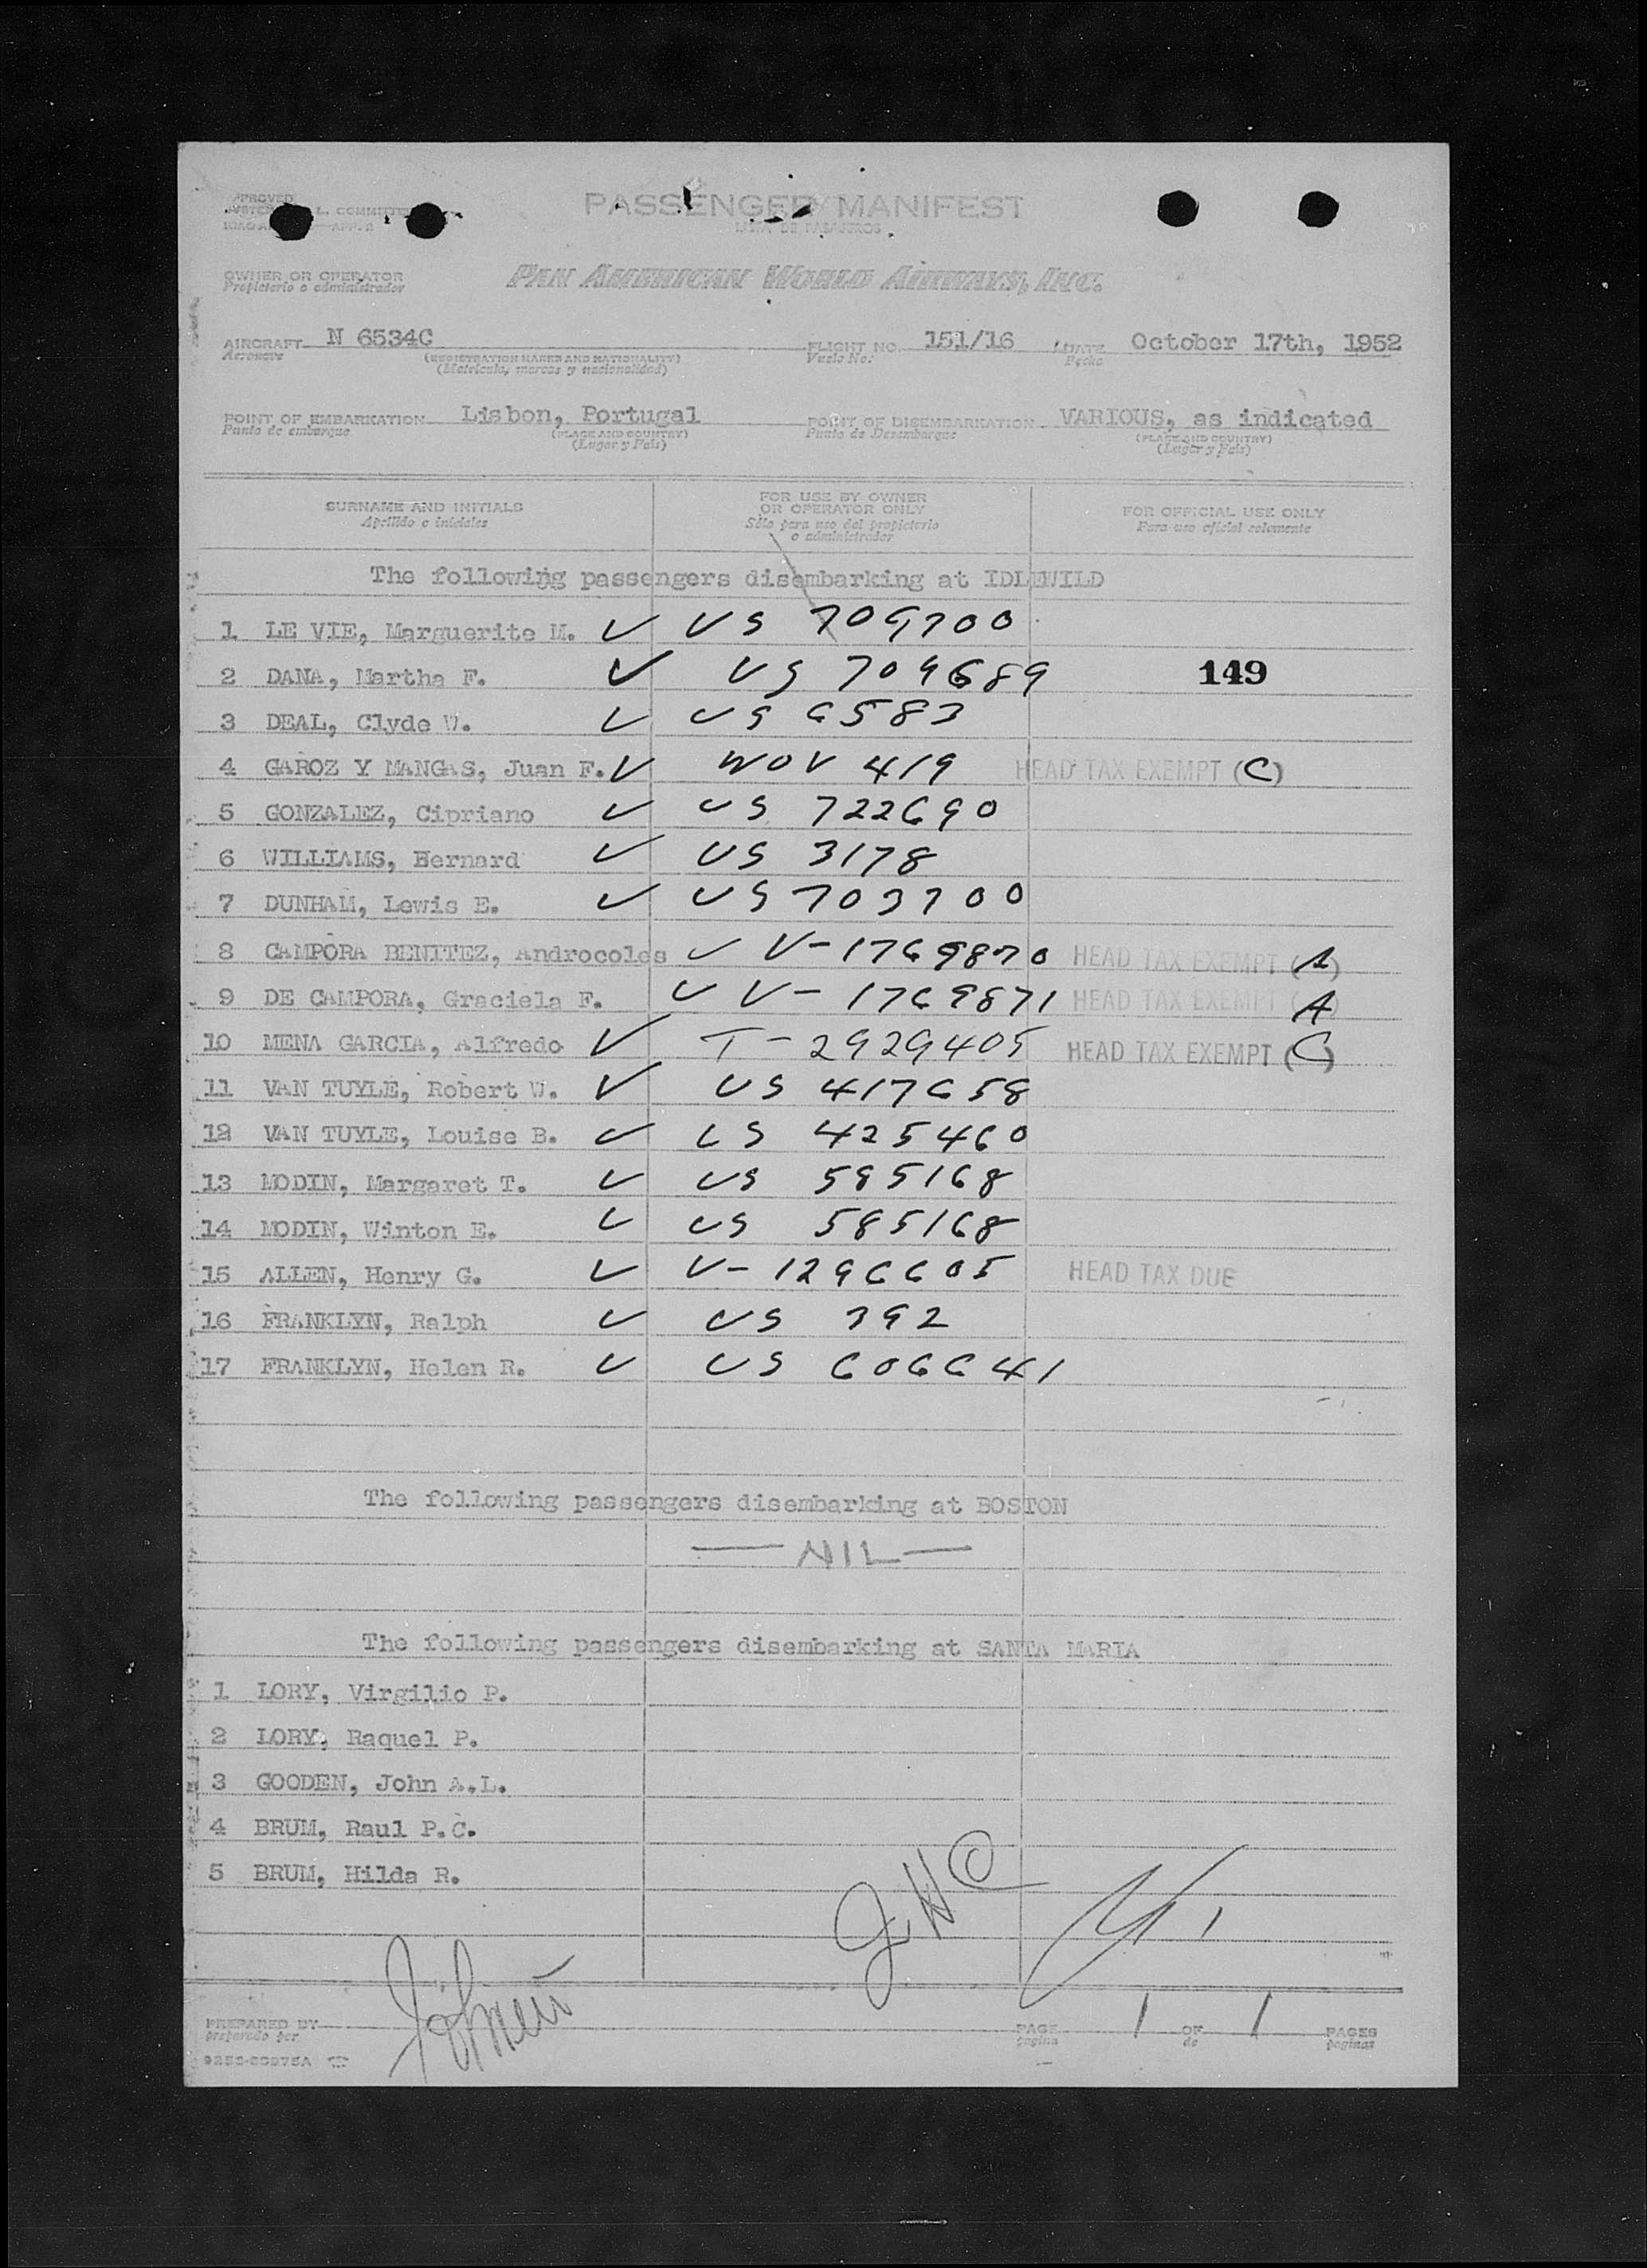 APPROVED
L. COMMITTEE
APP. 2
PASSENGER MANIFEST
LISTA DE PASAJEROS
OWNER OR OPERATOR
Propietario o administrador
PAN AMERICAN WORLD AIRWAYS, INC.
AIRCRAFT N 6534C FLIGHT NO. 151/16 DATE October 17th, 1952
Aeronave (REGISTRATION MARKS AND NATIONALITY) Vuelo No. Fecha
(Matricula, marcas y nacionalidad)
POINT OF EMBARKATION Lisbon, Portugal POINT OF DISEMBARKATION VARIOUS, as indicated
Punto de embarque (PLACE AND COUNTRY) Punto de Desembarque (PLACE AND COUNTRY)
(Lugar y País) (Lugar y País)
SURNAME AND INITIALS FOR USE BY OWNER OR OPERATOR ONLY FOR OFFICIAL USE ONLY
Apellido e iniciales Sólo para uso del propietario o administrador Para uso oficial solamente
The following passengers disembarking at IDLEWILD
1 LE VIE, Marguerite M. ✓ US 709700
2 DANA, Martha F. ✓ US 709689 149
3 DEAL, Clyde W. ✓ US 6583
4 GAROZ Y MANGAS, Juan F. ✓ WOV 419 HEAD TAX EXEMPT (C)
5 GONZALEZ, Cipriano ✓ US 722690
6 WILLIAMS, Bernard ✓ US 3178
7 DUNHAM, Lewis E. ✓ US 703700
8 CAMPORA BENITEZ, Androcoles ✓ V-1769870 HEAD TAX EXEMPT (A)
9 DE CAMPORA, Graciela F. ✓ V-1769871 HEAD TAX EXEMPT (A)
10 MENA GARCIA, Alfredo ✓ T-2929405 HEAD TAX EXEMPT (C)
11 VAN TUYLE, Robert W. ✓ US 417658
12 VAN TUYLE, Louise B. ✓ US 425460
13 MODIN, Margaret T. ✓ US 585168
14 MODIN, Winton E. ✓ US 585168
15 ALLEN, Henry G. ✓ V-1296605 HEAD TAX DUE
16 FRANKLYN, Ralph ✓ US 392
17 FRANKLYN, Helen R. ✓ US 606641
The following passengers disembarking at BOSTON
— NIL —
The following passengers disembarking at SANTA MARIA
1 LORY, Virgilio P.
2 LORY, Raquel P.
3 GOODEN, John A.L.
4 BRUM, Raul P.C.
5 BRUM, Hilda R.
PREPARED BY PAGE 1 OF 1 PAGES
preparado por pagina de paginas